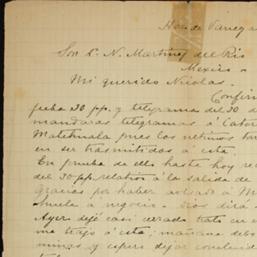 Hda. de Vanegas
Sor D. N. Martínez del Rio
Mexico
Mi querido Nicolas.
Confirm
fecha 30 pp. y telegrama del 30 d
mandaras telegramas á Cator
Matehuala pues los retiros tar
en ser trasmitidos á esta.
En prueba de ello hasta hoy re
del 30 pp. relativo á la salida de
Gracias por haber avisado á M
á negocio dirá
Ayer dejé casi cerrado trato en
me trajo á esta; mañana debo
minas y espero dejar concluid